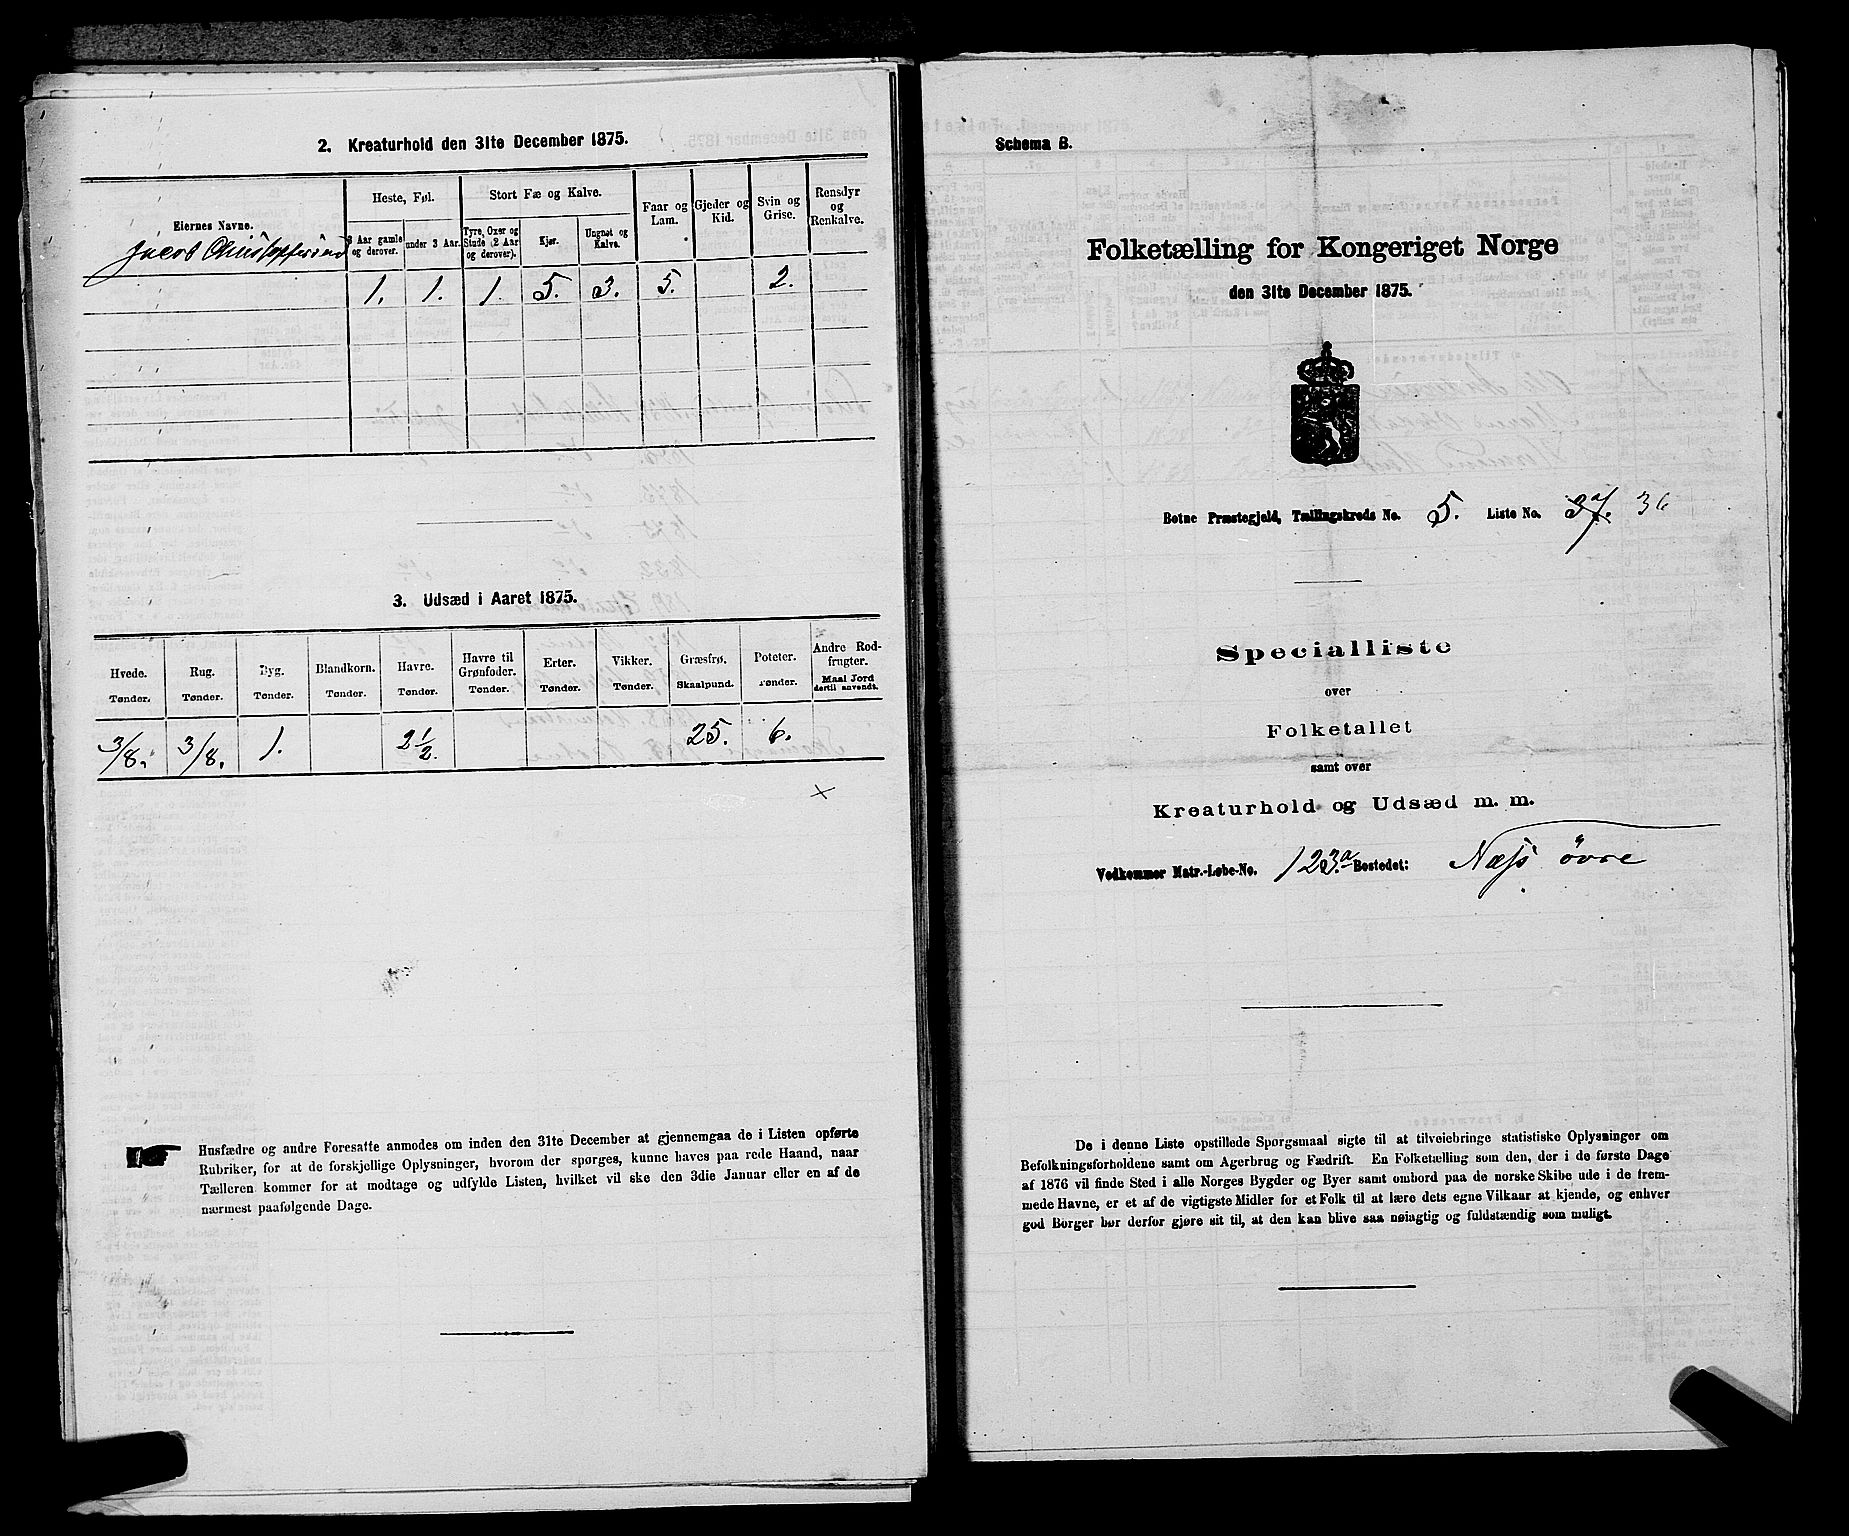 2. Kreaturhold den 31te December 1875.
Eiernes Navne.
Heste, Føl.
Stort Fæ og Kalve.
Faar og Lam.
Gjeder og Kid.
Svin og Grise.
Rensdyr og Renkalve.
3 Aar gamle og derover.
under 3 Aar.
Tyre, Oxer og Stude (2 Aar og derover).
Kjør.
Ungnøt og Kalve.
Jacob Christoffersen
1. 1. 1. 5. 3. 5. 2.
3. Udsæd i Aaret 1875.
Hvede. Tønder.
Rug. Tønder.
Byg. Tønder.
Blandkorn. Tønder.
Havre. Tønder.
Havre til Grønfoder. Tønder.
Erter. Tønder.
Vikker. Tønder.
Græsfrø. Skaalpund.
Poteter. Tønder.
Andre Rodfrugter. Maal Jord dertil anvendt.
3/8. 3/8. 1. 2 1/2. 25. 6.
×
Husfædre og andre Foresatte anmodes om inden den 31te December at gjennemgaa de i Listen opførte
Rubriker, for at de forskjellige Oplysninger, hvorom der spørges, kunne haves paa rede Haand, naar
Tælleren kommer for at modtage og udfylde Listen, hvilket vil ske den 3die Januar eller en af de
nærmest paafølgende Dage.
Schema B.
Folketælling for Kongeriget Norge
den 31te December 1875.
Botne Præstegjeld, Tællingskreds No. 5. Liste No. 37. 36
Specialliste
over
Folketallet
samt over
Kreaturhold og Udsæd m. m.
Vedkommer Matr.-Løbe-No. 123.a Bostedet: Næss øvre
De i denne Liste opstillede Spørgsmaal sigte til at tilveiebringe statistiske Oplysninger om
Befolkningsforholdene samt om Agerbrug og Fædrift. En Folketælling som den, der i de første Dage
af 1876 vil finde Sted i alle Norges Bygder og Byer samt ombord paa de norske Skibe ude i de frem-
mede Havne, er et af de vigtigste Midler for et Folk til at lære dets egne Vilkaar at kjende, og enhver
god Borger bør derfor gjøre sit til, at den kan blive saa nøiagtig og fuldstændig som muligt.